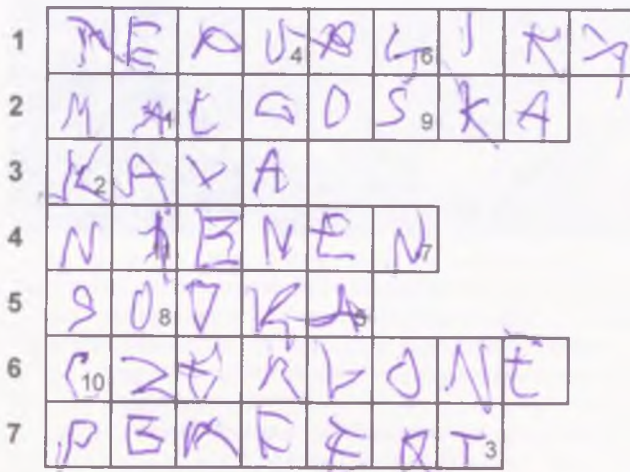 1 R E P U 4 B L 6 I K A
2 M A 1 L G O S 9 K A
3 K 2 A Y A
4 N I E N E N 7
5 S O 8 Y K A 5
6 C 10 Z E R W O N E
7 P E R F E K T 3